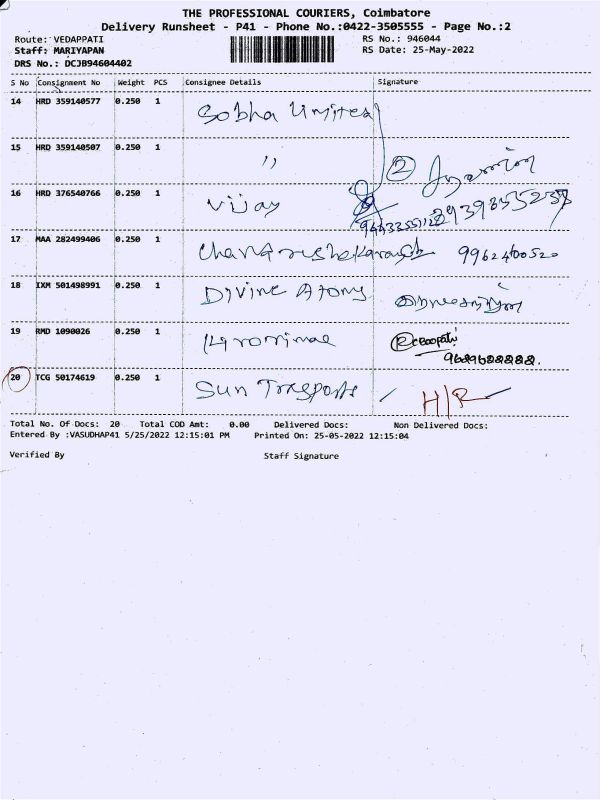 THE PROFESSIONAL COURIERS, Coimbatore
Delivery Runsheet - P41 - Phone No.:0422-3505555 - Page No.:2
Route: VEDAPPATI RS No.: 946044
Staff: MARIYAPAN RS Date: 25-May-2022
DRS No.: DCJB94604402
S No Consignment No Weight PCS Consignee Details Signature
14 HRD 359140577 0.250 1 Sobha Limited
15 HRD 359140507 0.250 1 " 2
16 HRD 376540766 0.250 1 Vijay
17 MAA 282499406 0.250 1 9962400520
18 IXM 501498991 0.250 1 Divine
19 RMD 1090026 0.250 1
9689688888.
20 TCG 50174619 0.250 1 Sun Trasports H/R
Total No. Of Docs: 20 Total COD Amt: 0.00 Delivered Docs: Non Delivered Docs:
Entered By :VASUDHAP41 5/25/2022 12:15:01 PM Printed On: 25-05-2022 12:15:04
Verified By Staff Signature